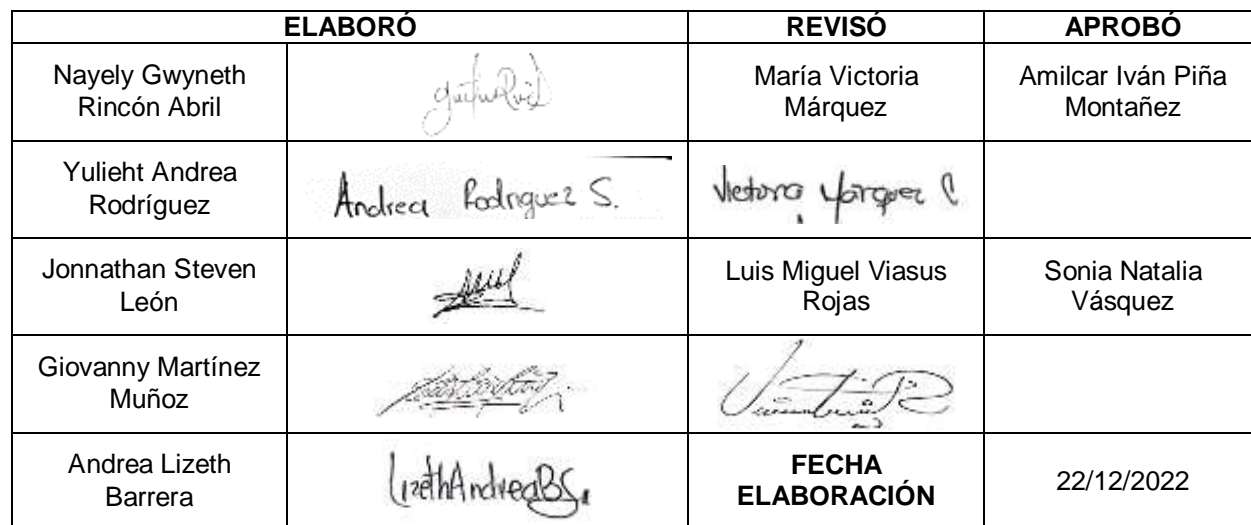 ELABORÓ REVISÓ APROBÓ
Nayely Gwyneth
Rincón Abril
María Victoria
Márquez
Amilcar Iván Piña
Montañez
Yulieht Andrea
Rodríguez
Andrea Rodriguez S.
Victoria Márquez C
Jonnathan Steven
León
Luis Miguel Viasus
Rojas
Sonia Natalia
Vásquez
Giovanny Martínez
Muñoz
Andrea Lizeth
Barrera
LizethAndreaBS.
FECHA
ELABORACIÓN
22/12/2022